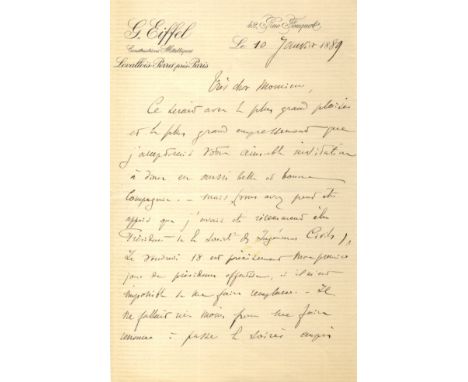 G. Eiffel
Constructions Métalliques
Levallois-Perret près Paris
42, Rue Fouquet
Le 10 Janvier 1889
Très cher Monsieur,
Ce serait avec le plus grand plaisir
et le plus grand empressement que
j'accepterais votre aimable invitation
à dîner en aussi belle et bonne
Compagnie. – mais (vous avez peut-être
appris que j'avais été récemment élu
Président de la Société des Ingénieurs Civils),
Le Vendredi 18 est précisément mon premier
jour de présidence effective, et il m'est
impossible de me faire remplacer. – Il
ne fallait rien moins pour me faire
renoncer à passer la soirée auprès